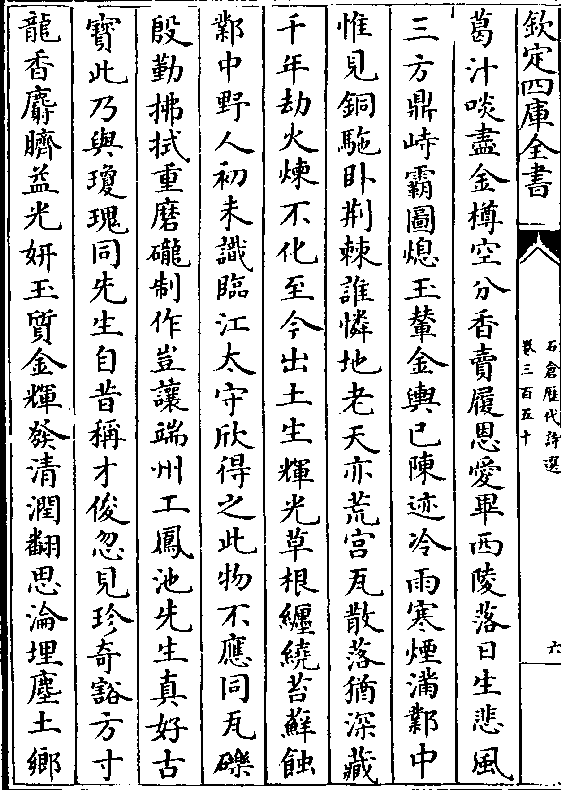 欽定四庫全書
石倉歷代詩選
卷三百五十
六
葛汁啖盡金樽空分香賣履恩愛畢西陵落日生悲風
三方鼎峙霸圖熄玉輦金輿已陳迹冷雨寒煙滿鄴中
惟見銅駞卧荆棘誰憐地老天亦荒宫瓦散落猶深藏
千年劫火煉不化至今出土生輝光草根纏繞苔蘚蝕
鄴中野人初未識臨江太守欣得之此物不應同瓦礫
殷勤拂拭重磨礲制作豈讓端州工鳳池先生真好古
寳此乃與瓊瑰同先生自昔稱才俊忽見珍奇豁方寸
龍香麝臍益光妍玉質金輝發清潤翻思淪埋塵土鄉